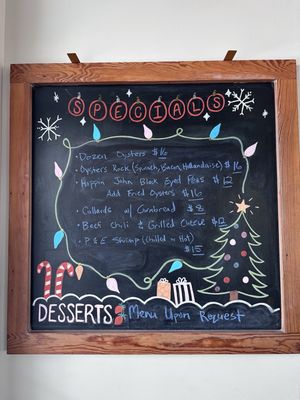 SPECIALS
• Dozen Oysters $16
• Oysters Rock (Spinach, Bacon, Hollandaise) $16
• Hoppin John Black Eyed Peas $12
Add Fried Oysters $16
• Collards w/ Cornbread $8
• Beef Chili & Grilled Cheese $12
• P & E Shrimp (Chilled or Hot)
$15
DESSERTS Menu Upon Request